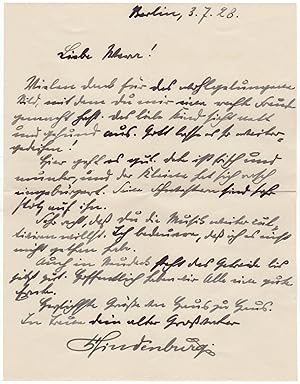 Berlin, 3.7.28.
Liebe !
Vielen Dank für das wohlgelungene
Bild, mit dem du mir eine rechte Freude
gemacht hast. Das liebe Kind sieht nett
und gesund aus. Gott lasse es so weiter-
gedeihen!
Hier geht es gut. ist frisch und
munter, und der Kleine hat sich rasch
eingebürgert. Seine Schwestern sind sehr
stolz auf ihn.
recht, daß du die Musik weiter cul-
tivieren willst. Ich bedaure, daß ich es nicht
gethan habe.
Auch in Neudeck steht das Getreide bis
jetzt gut. Hoffentlich haben wir Alle eine gute
Ernte.
Herzlichste Grüße von Haus zu Haus.
In Treue dein alter Großvater
Hindenburg.